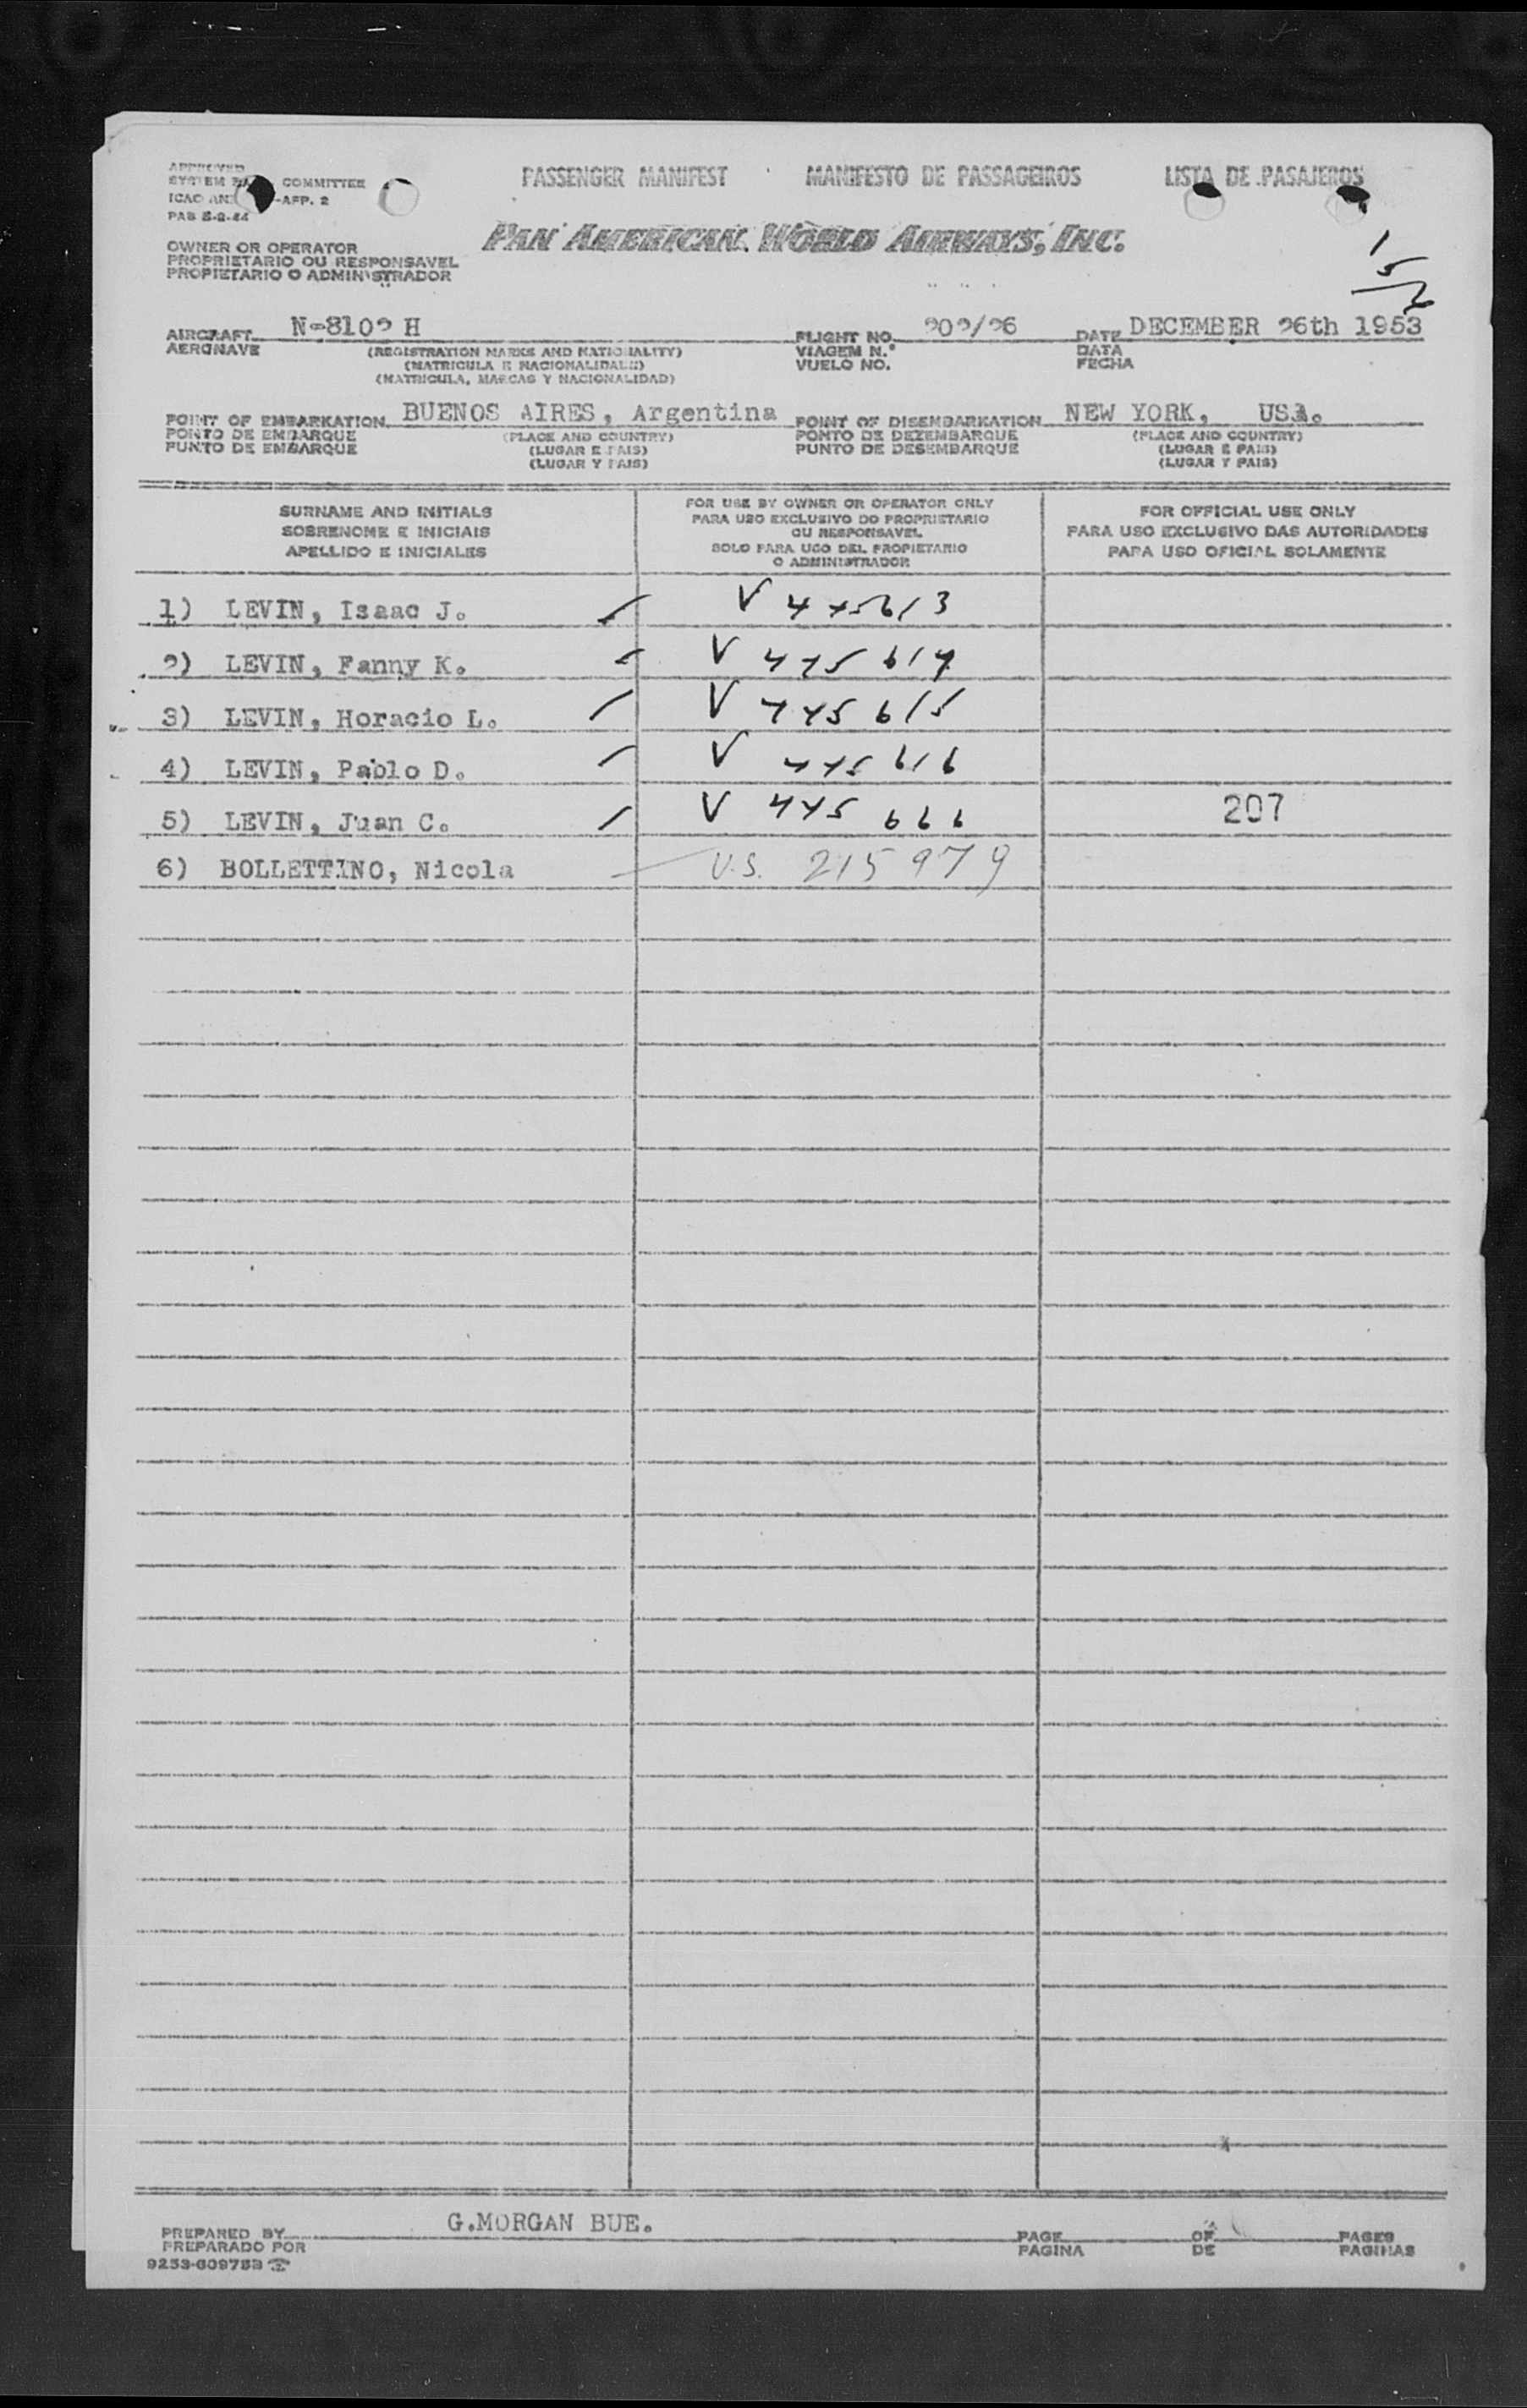 APPROVED
SYSTEM COMMITTEE
ICAO -APP. 2
PAB 5-2-44
PASSENGER MANIFEST MANIFESTO DE PASSAGEIROS LISTA DE PASAJEROS
PAN AMERICAN WORLD AIRWAYS, INC.
OWNER OR OPERATOR
PROPRIETARIO OU RESPONSAVEL
PROPIETARIO O ADMINISTRADOR
1
5
AIRCRAFT N-8102 H FLIGHT NO. 202/26 DATE DECEMBER 26th 1953
AERONAVE (REGISTRATION MARKS AND NATIONALITY) VIAGEM N.° DATA
(MATRICULA E NACIONALIDADE) VUELO NO. FECHA
(MATRICULA, MARCAS Y NACIONALIDAD)
POINT OF EMBARKATION BUENOS AIRES, Argentina POINT OF DISEMBARKATION NEW YORK, USA.
PONTO DE EMBARQUE (PLACE AND COUNTRY) PONTO DE DEZEMBARQUE (PLACE AND COUNTRY)
PUNTO DE EMBARQUE (LUGAR E PAIS) PUNTO DE DESEMBARQUE (LUGAR E PAIS)
(LUGAR Y PAIS) (LUGAR Y PAIS)
SURNAME AND INITIALS
SOBRENOME E INICIAIS
APELLIDO E INICIALES
FOR USE BY OWNER OR OPERATOR ONLY
PARA USO EXCLUSIVO DO PROPRIETARIO
OU RESPONSAVEL
SOLO PARA USO DEL PROPIETARIO
O ADMINISTRADOR
FOR OFFICIAL USE ONLY
PARA USO EXCLUSIVO DAS AUTORIDADES
PARA USO OFICIAL SOLAMENTE
1) LEVIN, Isaac J. V 475613
2) LEVIN, Fanny K. V 475614
3) LEVIN, Horacio L. V 475615
4) LEVIN, Pablo D. V 475616
5) LEVIN, Juan C. V 475666 207
6) BOLLETTINO, Nicola U.S. 215979
PREPARED BY G.MORGAN BUE. PAGE OF PAGES
PREPARADO POR PAGINA DE PAGINAS
9253-609753